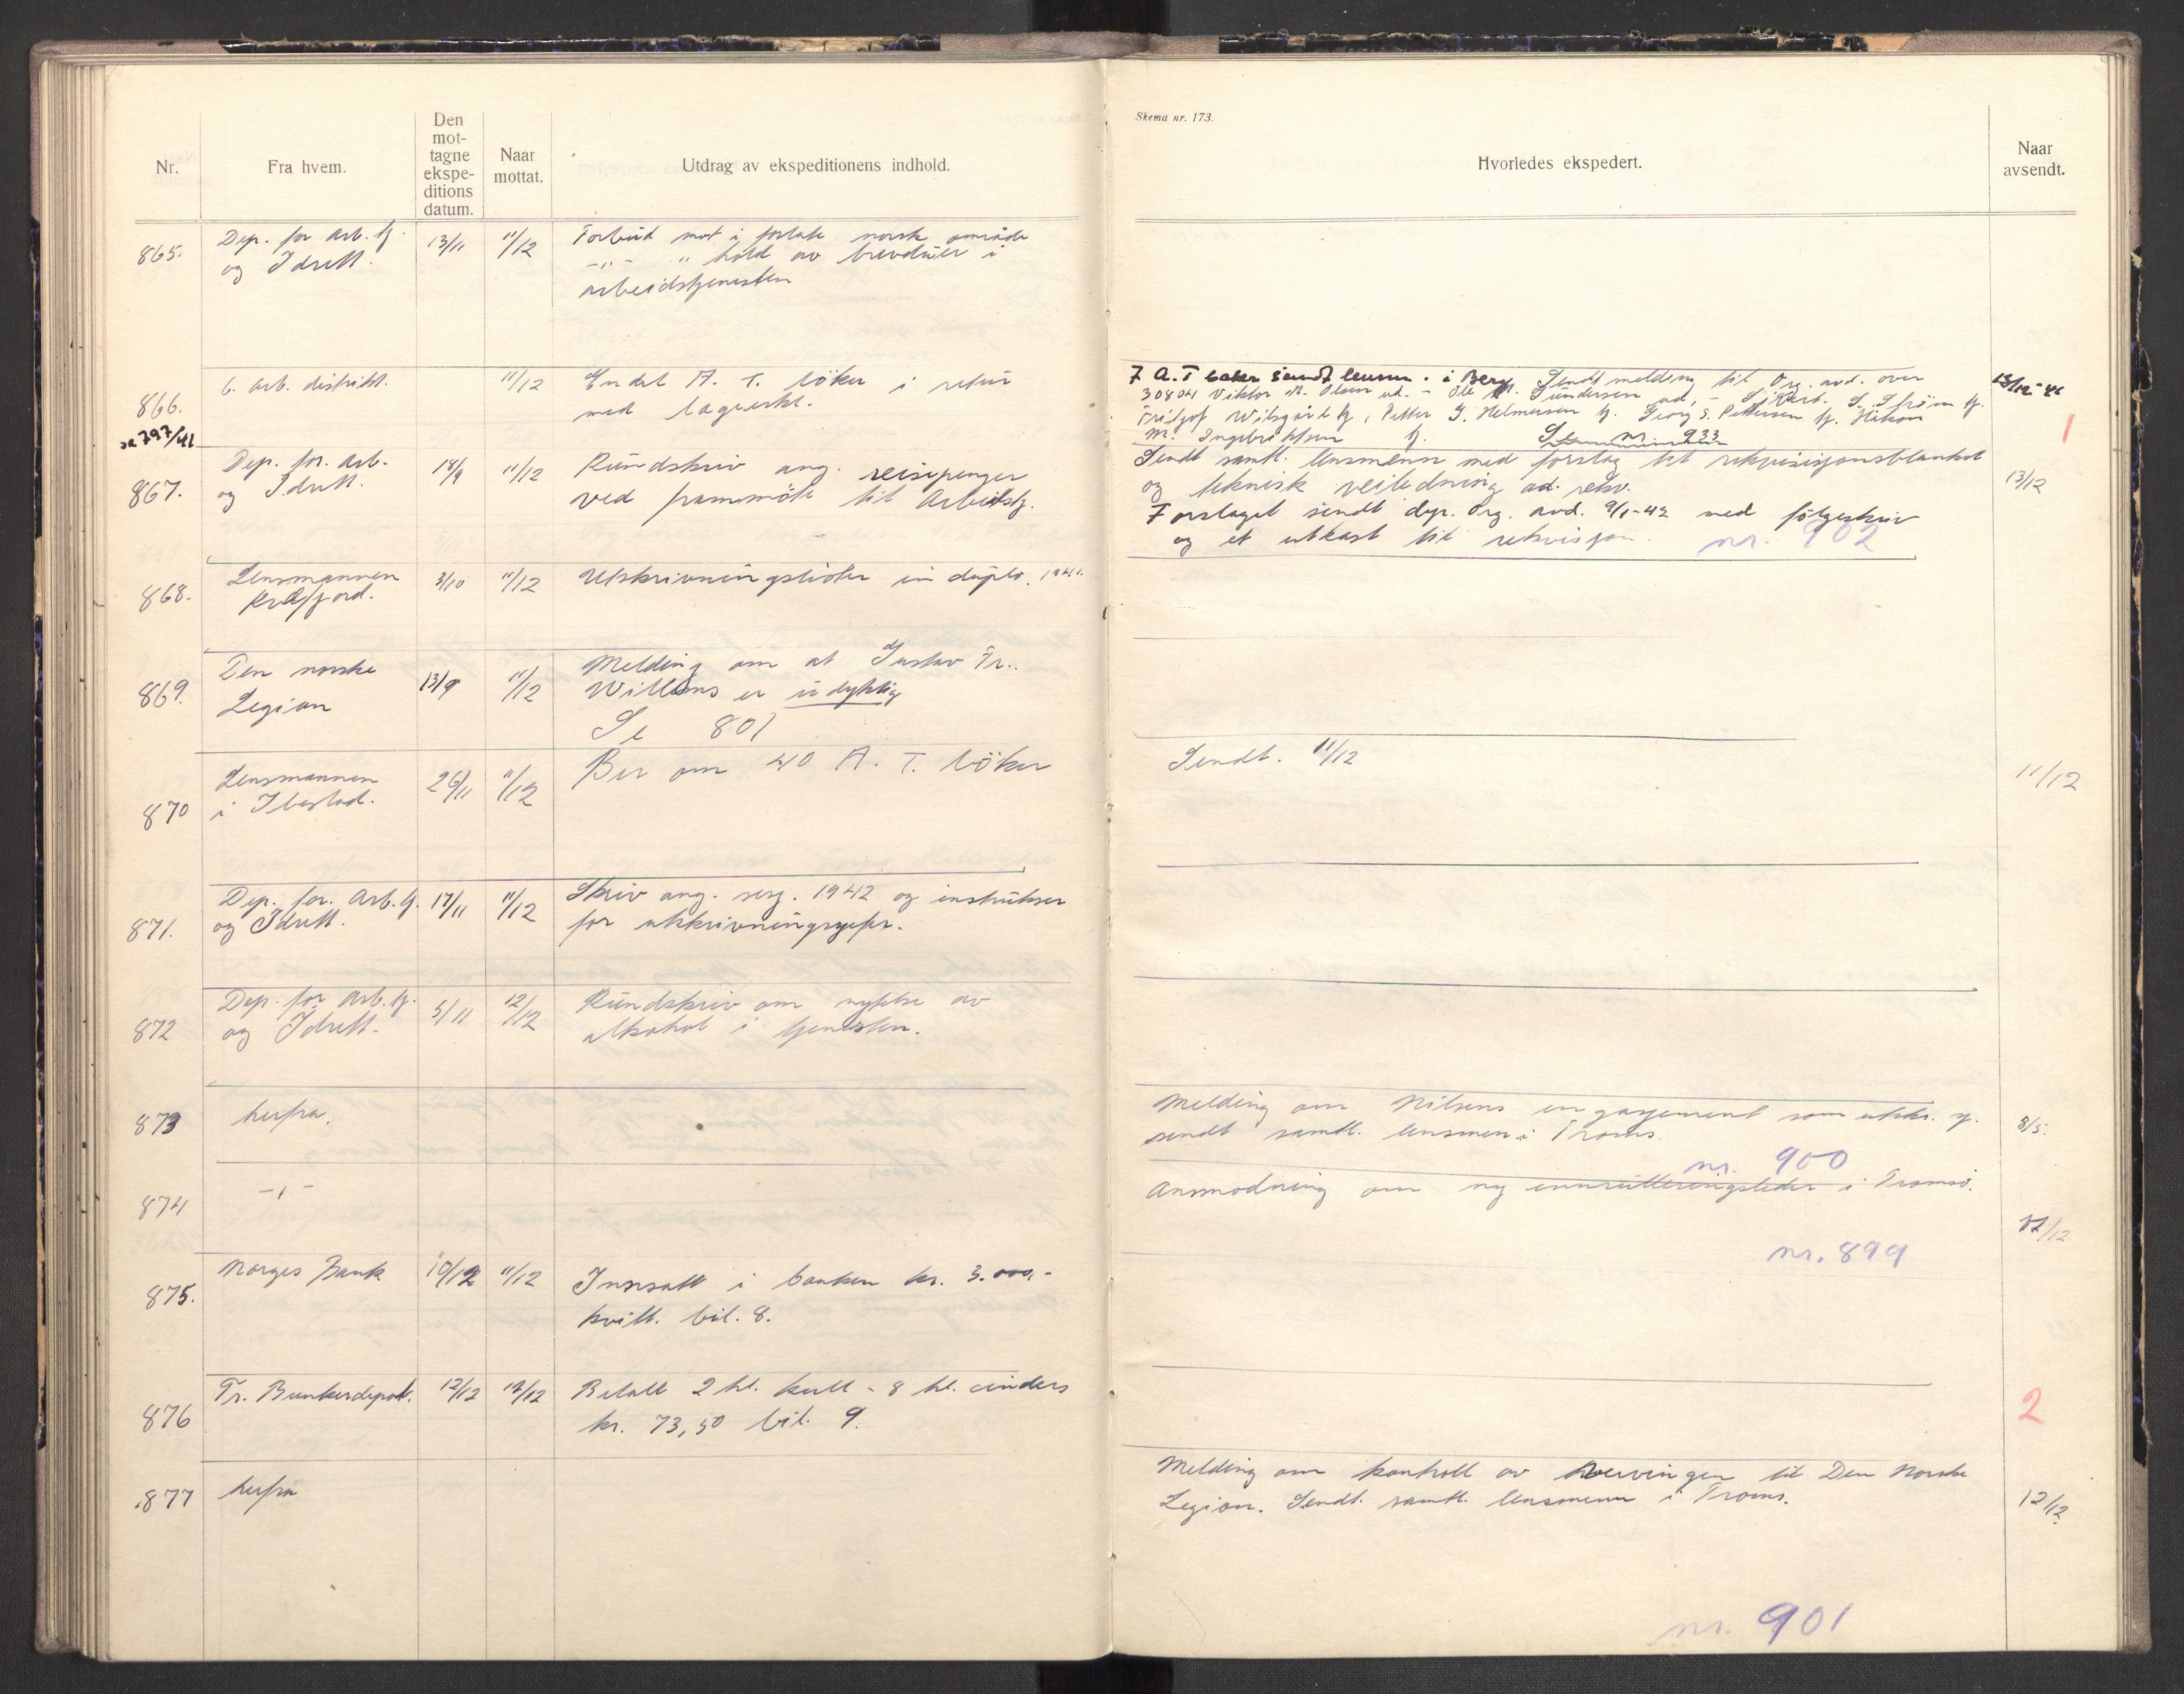 Nr.
Fra hvem.
Den
mot-
tagne
ekspe-
ditions
datum.
Naar
mottat.
Utdrag av ekspeditionens indhold.
865.
Dep. for Arb. tj.
og Idrett.
13/11
11/12
Forbud mot å forlate norsk område
-"- " hold av brevduer i
arbeidstjenesten
866.
se 797/41
6. arb. distrikt.
11/12
Endel A. T. böker i retur
med lagverkl.
867.
Dep. for. Arb-
og Idrett.
18/9
11/12
Rundskriv ang. reisepenger
ved frammöte til Arbeidstj.
868.
Lensmannen
Kvæfjord.
3/10
11/12
Utskrivningslister in duplo. 1941.
869.
Den norske
Legion
13/9
11/12
Melding om at Gustav Fr..
Willems er udyktig
Se 801
870
Lensmannen
i Ibestad.
26/11
11/12
Ber om 40 A. T. böker
871.
Dep. for. Arb. tj.
og Idrett.
17/11
11/12
Skriv ang. sesj. 1942 og instrukser
for utskrivningssjefer.
872
Dep. for Arb. tj.
og Idrett.
5/11
12/12
Rundskriv om nytelse av
alkohol i tjenesten.
873
herfra.
874
-"-
875.
Norges Bank
10/12
11/12
Innsatt i banken kr. 3.000,-
kvitt. bil. 8.
876
Tr. Bunkerdepot.
12/12
12/12
Betalt 2 hl. kull - 8 hl. cinders
kr. 73,50 bil. 9.
877
herfra
Skema nr. 173.
Hvorledes ekspedert.
Naar
avsendt.
7 A.T bøker sendt lensm. i Berg. Sendt melding til Org. avd. over
30804 Viktor M. Olsen ud. - Ole M. Gundersen ud, - S. Ström tj.
Fritjof Wilsgård tj, Petter J. Helmersen tj. Georg S. Pettersen tj. Håkon
M. Ingebriktsen tj. Se nr. 933
13/12-41
1
Sendt samtl. lensmenn med forslag til rekvisisjonsblankett
og teknisk veiledning ad. rekv.
Forslaget sendt dep. Org. avd. 9/1-42 med fölgeskriv
og et utkast til rekvisjon. nr. 902
13/12
Sendt. 11/12
11/12
Melding om Nilsens engasjement som utskr. sj.
sendt samtl. lensmen i Troms.
8/5.
nr. 900
Anmodning om ny innrulleringsleder i Tromsö.
12/12
nr. 899
2
Melding om kontroll av vervingen til Den Norske
Legion. Sendt. samtl. lensmenn i Troms.
12/12
nr. 901